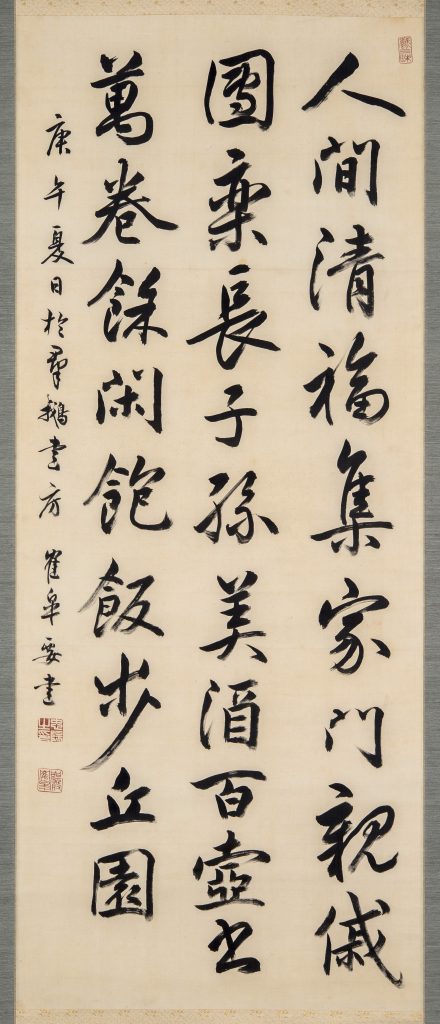 人間清福集家門親戚
團欒長子孫美酒百壺書
萬卷餘閑飽飯步丘園
庚午夏日於羣鵝書房 崔書